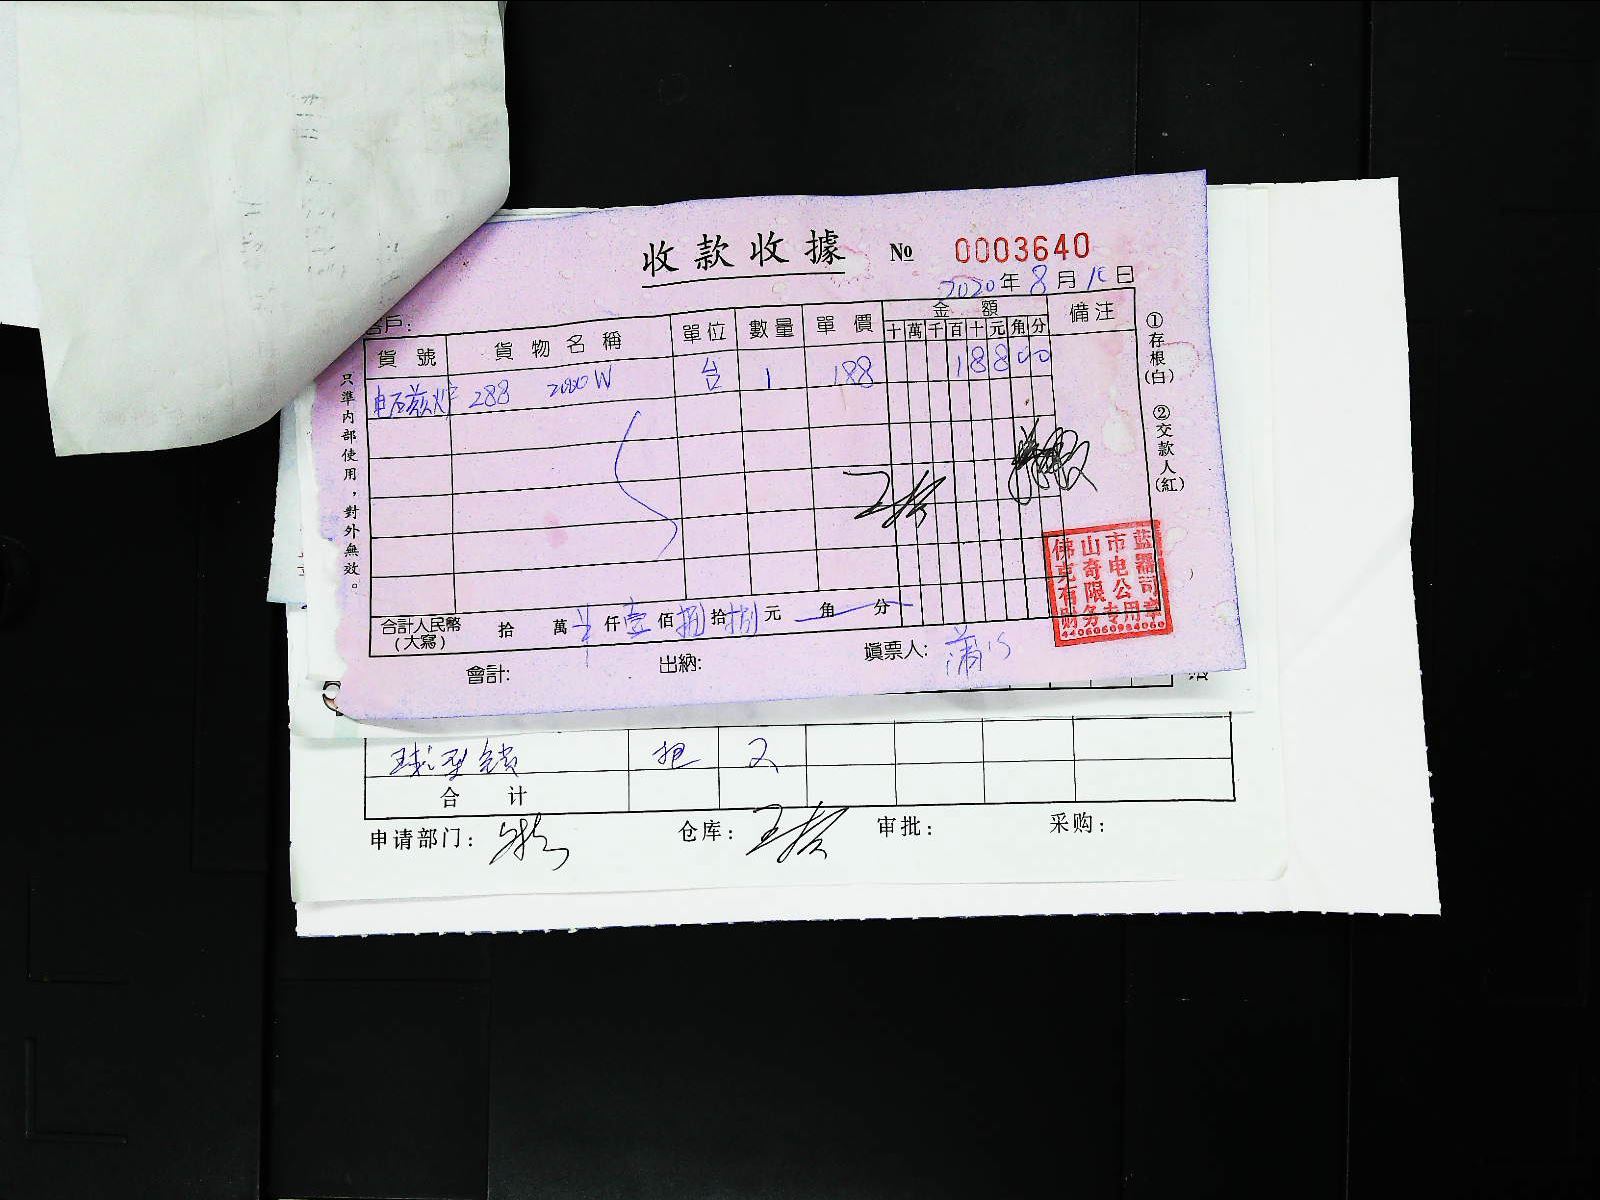 收款收據 № 0003640
2020年8月10日
客戶:
貨號 貨物名稱 單位 數量 單價 金額 備注
十萬千百十元角分
电磁炉 288 2000W 台 1 188 18800
合計人民幣(大寫) 拾 萬 仟壹佰捌拾捌元 角 分
會計: 出納: 填票人:
只準内部使用，對外無效。
①存根(白) ②交款人(紅)
佛山市蓝
克奇电器
有限公司
财务专用章
球型锁 把 2
合计
申请部门: 仓库: 审批: 采购: